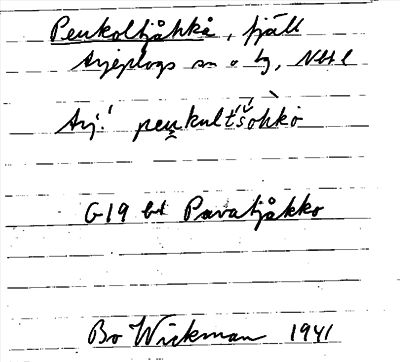 Peukoltjåkkå, fjäll
Arjeplogs sn o tg, Nbt l
Arj.: peu̯kultśŏhkò
G19 bd Pavatjåkko
Bo Wickman 1941